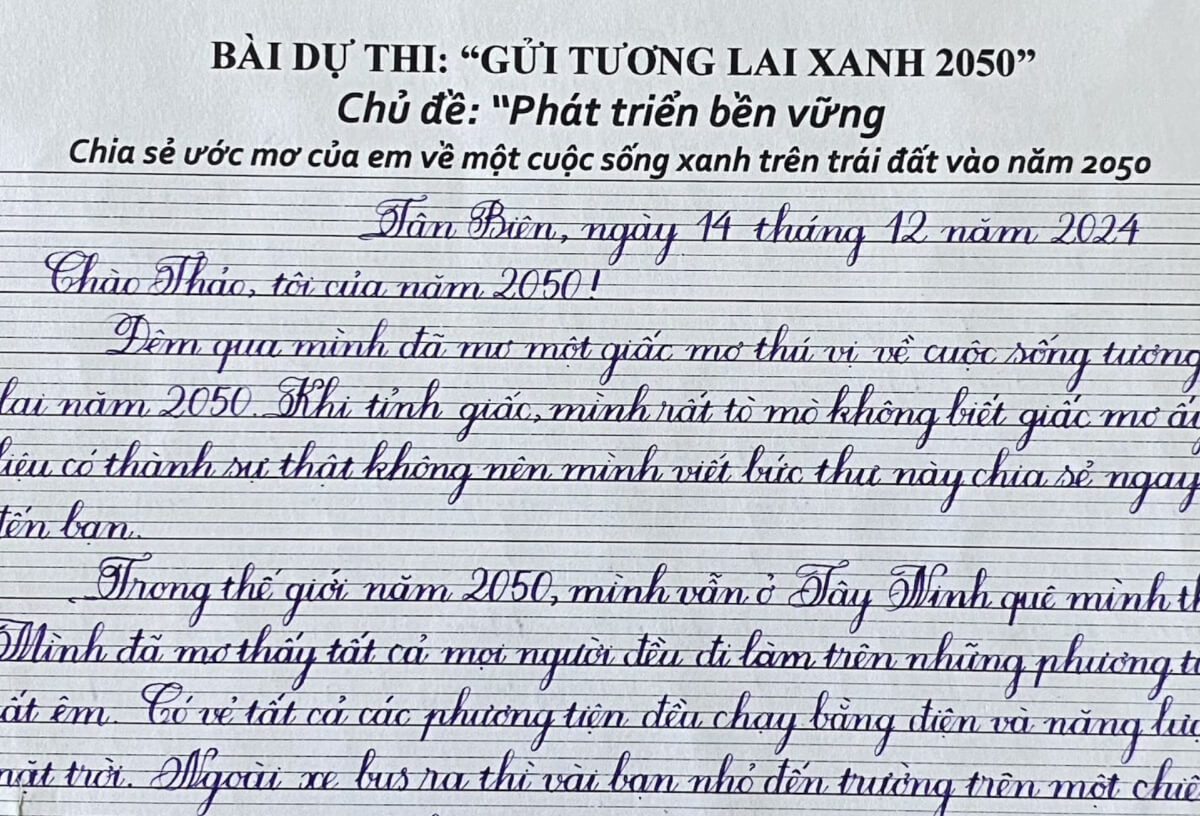 BÀI DỰ THI: “GỬI TƯƠNG LAI XANH 2050”
Chủ đề: "Phát triển bền vững
Chia sẻ ước mơ của em về một cuộc sống xanh trên trái đất vào năm 2050
Tân Biên, ngày 14 tháng 12 năm 2024
Chào Thảo, tôi của năm 2050!
Đêm qua mình đã mơ một giấc mơ thú vị về cuộc sống tương
lai năm 2050. Khi tỉnh giấc, mình rất tò mò không biết giấc mơ ấy
liệu có thành sự thật không nên mình viết bức thư này chia sẻ ngay
đến bạn.
Trong thế giới năm 2050, mình vẫn ở Tây Ninh quê mình th
Mình đã mơ thấy tất cả mọi người đều đi làm trên những phương ti
ất êm. Có vẻ tất cả các phương tiện đều chạy bằng điện và năng lượ
mặt trời. Ngoài xe bus ra thì vài bạn nhỏ đến trường trên một chiế